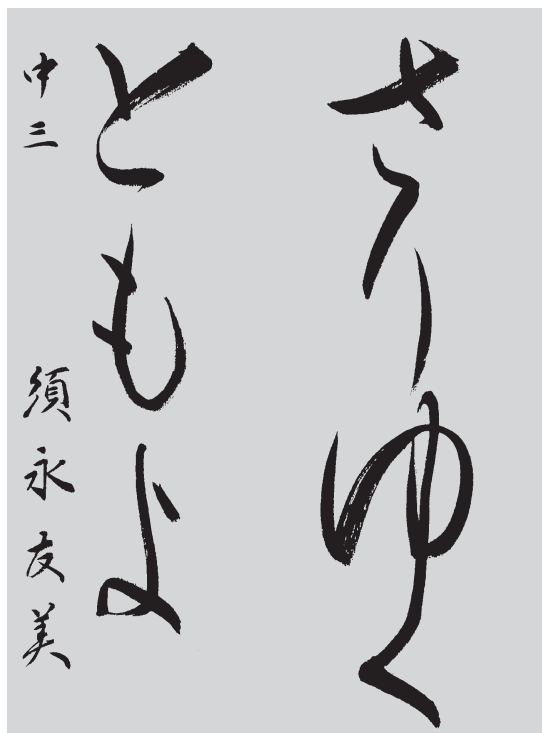 さりゆく
ともよ
中三 須永友美